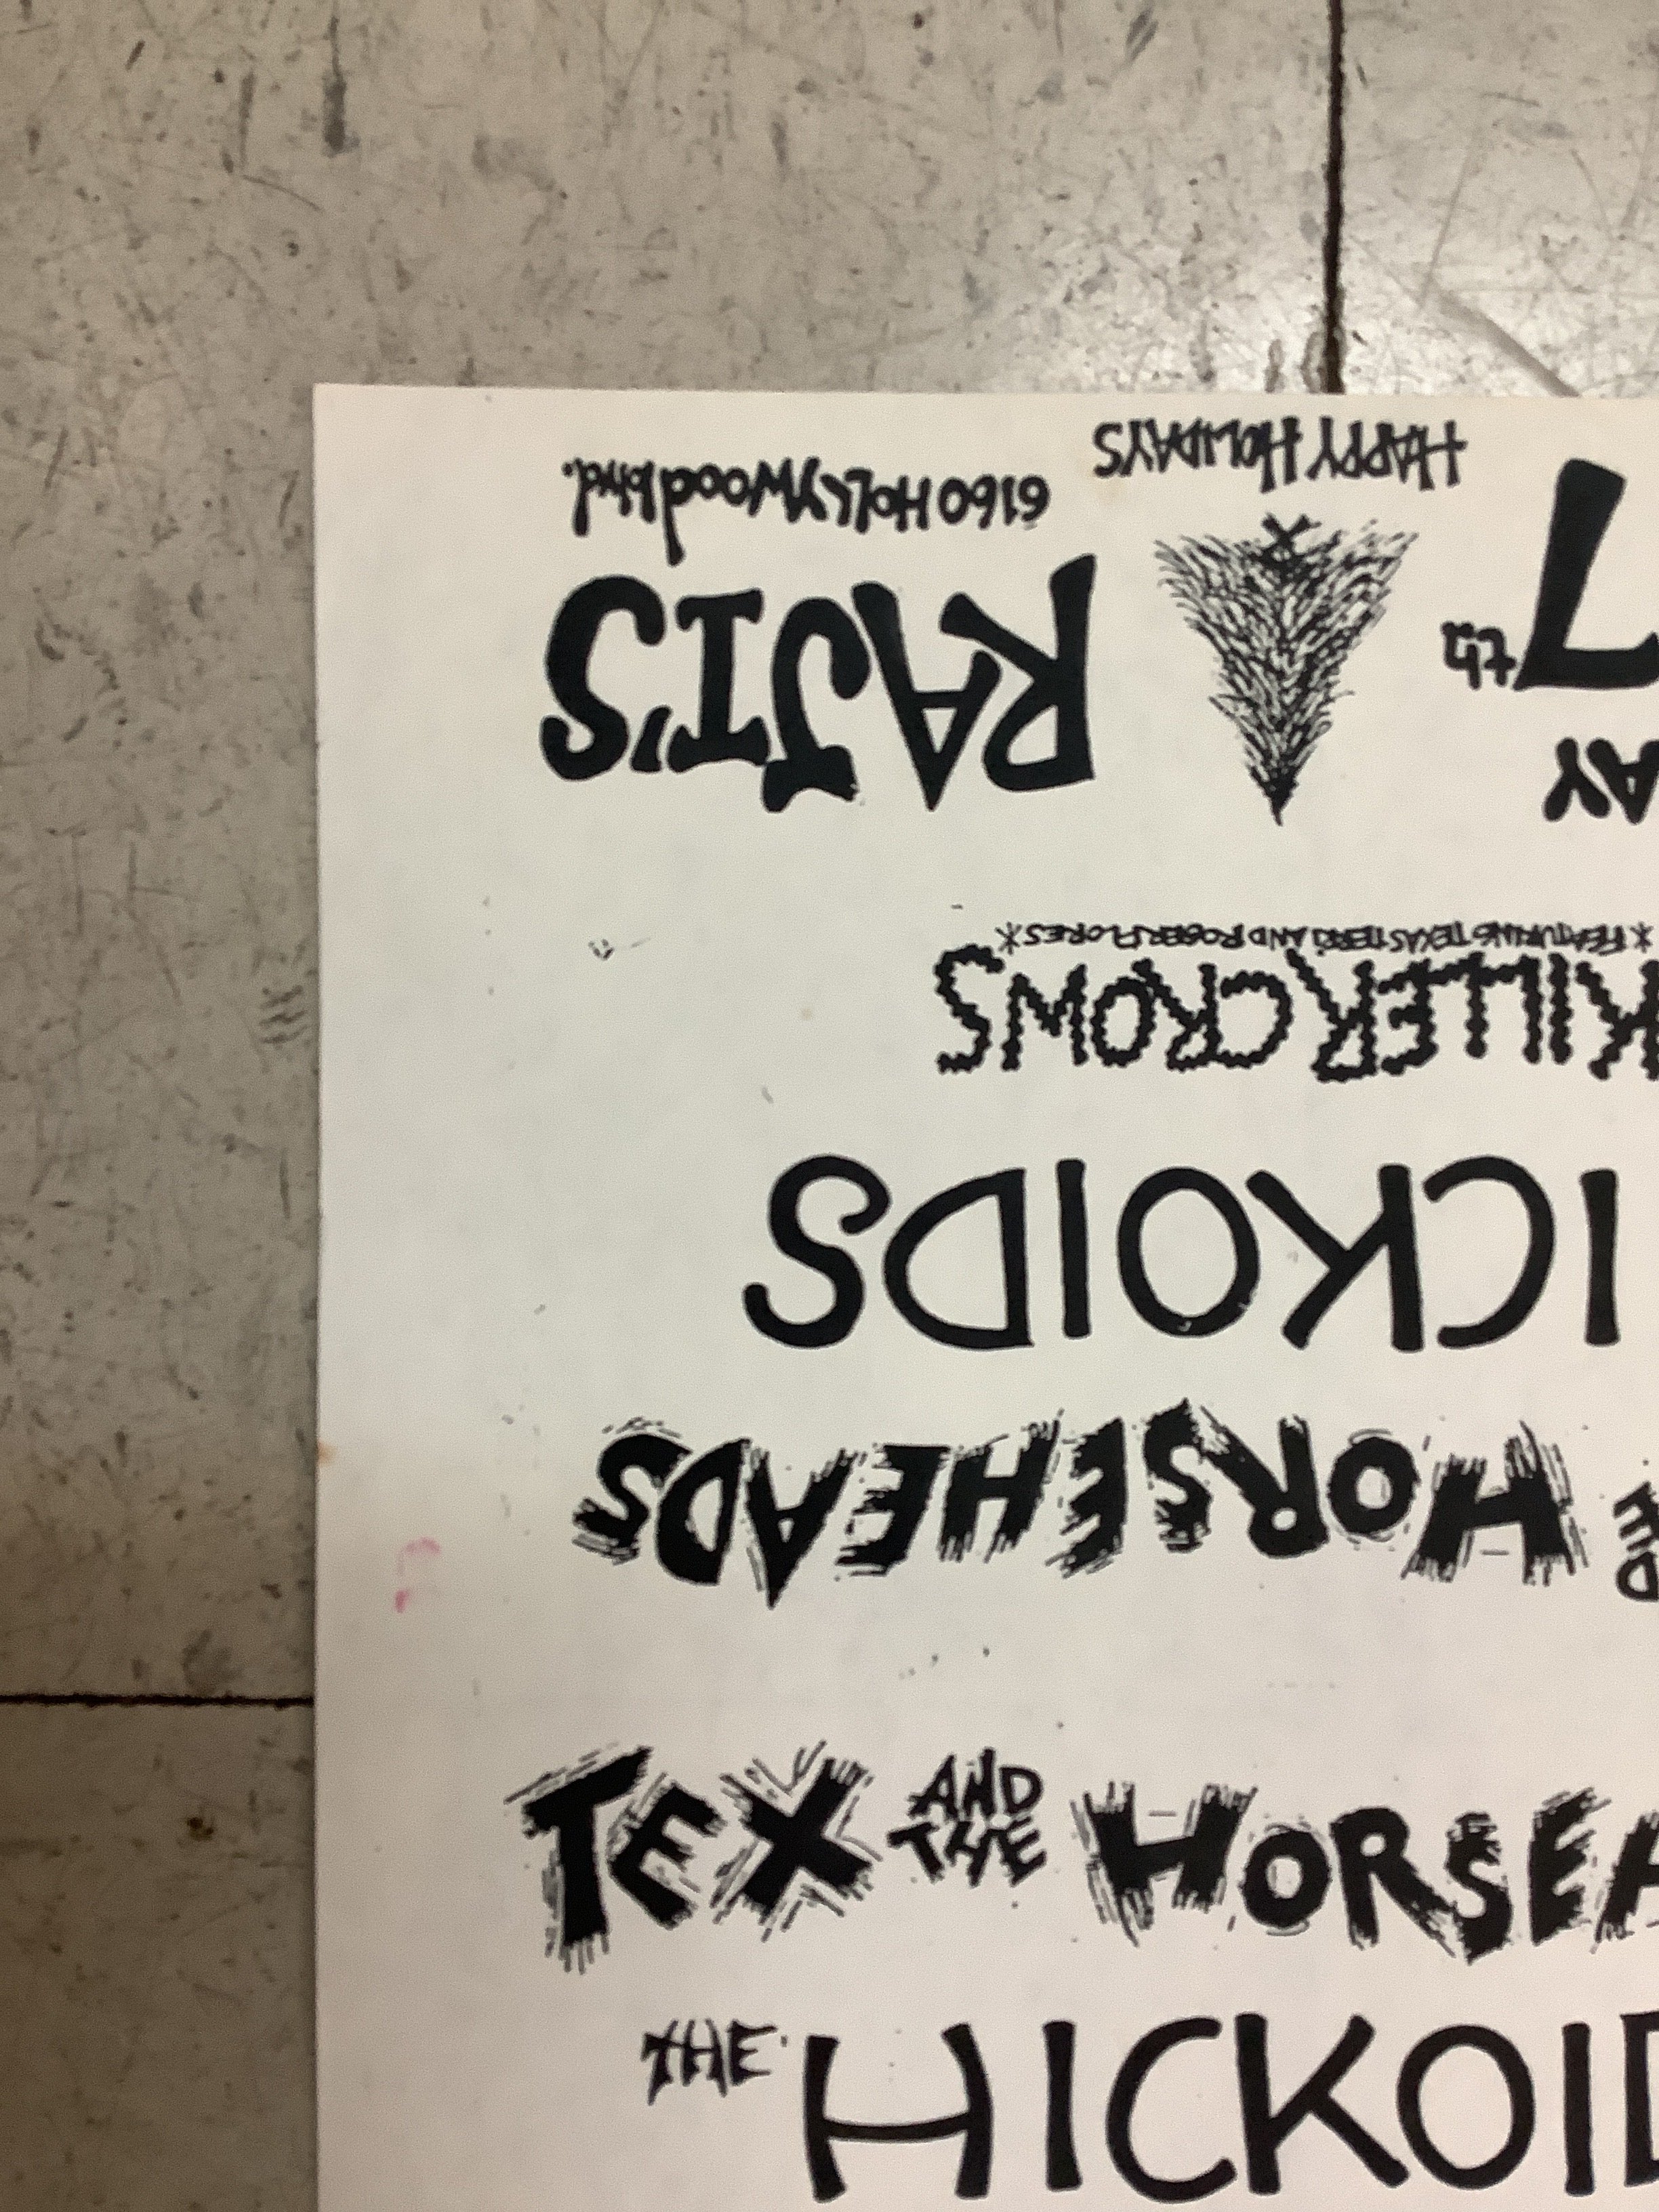 HORSEHEADS
ICKOIDS
KILLER CROWS
*FEATURING TEXAS TERRI AND ROGER FLORES*
AY
7th
RAJI'S
HAPPY HOLIDAYS
6160 HOLLYWood blvd.
TEX AND THE HORSE
THE HICKOI